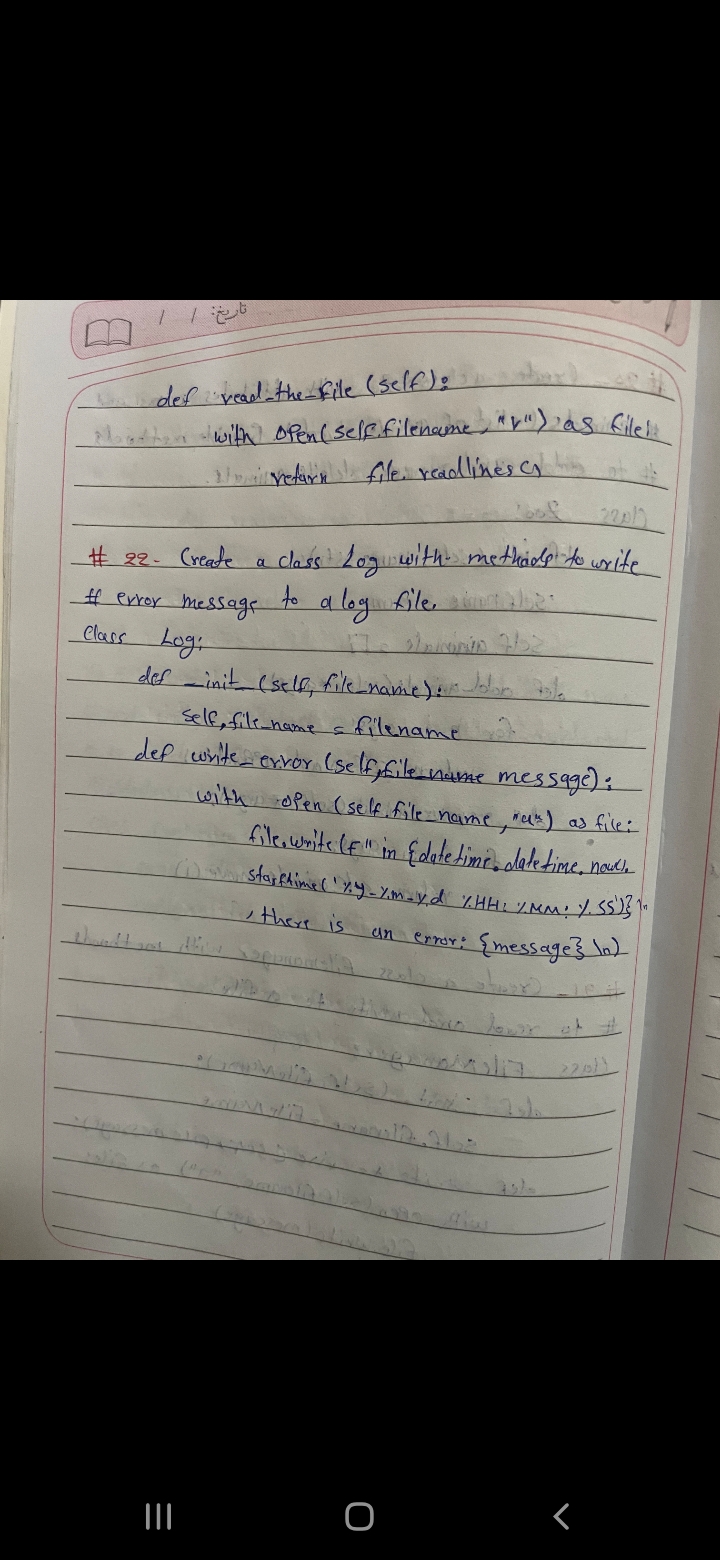 تاریخ: / /
def read_the_file (self):
with open(self.filename, "r") as file:
return file.readlines()
# 22- Create a class Log with methods to write
# error message to a log file.
Class Log:
def _init_ (self, file_name):
self.file_name = filename
def write_error (self, file_name message):
with open (self.file_name, "a") as file:
file.write(f" in {datetime.datetime.now().
('%y-%m-%d %HH: %MM: %SS')} \n
, there is an error: {message} \n)